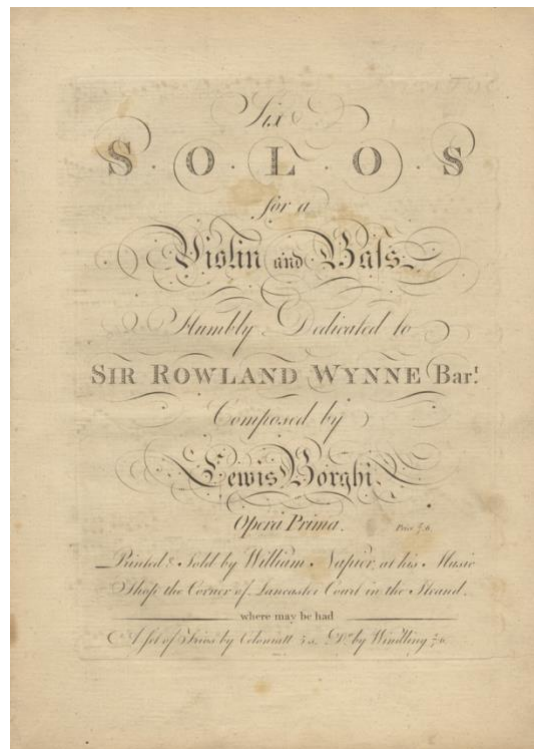 Six
SOLOS
for a
Violin and Bass
Humbly Dedicated to
SIR ROWLAND WYNNE Bar.t
Composed by
Lewis Borghi.
Opera Prima. Price
Printed & Sold by William Napier, at his Music
Shop the Corner of Lancaster Court in the Strand.
where may be had
A set of Trios by D.o by Wendling